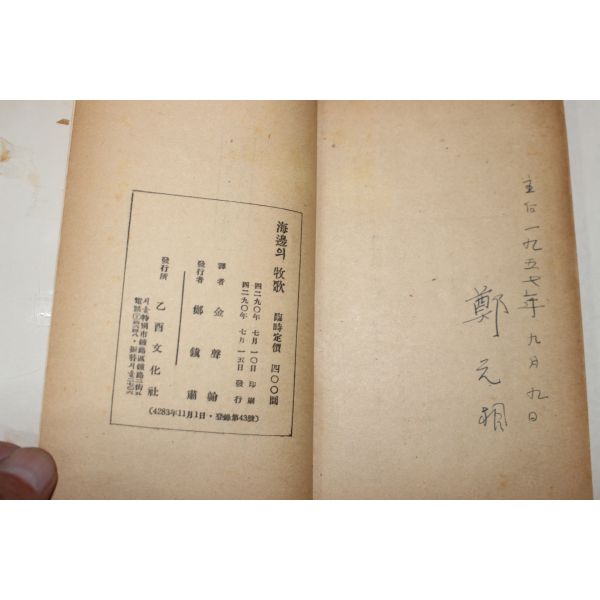 海邊의 牧歌 臨時定價 四〇〇圜
四二九〇年 七月 一〇日 印刷
四二九〇年 七月 一五日 發行
譯者 金聲翰
發行者 鄭鎭肅
發行所 乙酉文化社
서울特別市鍾路區鍾路二街
(4283年11月1日·登錄第43號)
一九五七年 九月 九日
鄭元相